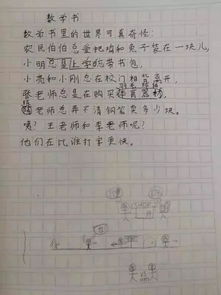 数学书
数学书里的世界可真奇怪:
农民伯伯总爱把鸡和兔子装在一块儿,
小明总是上学忘带书包,
小亮和小刚总在校门相背离开,
老师总是在购买体育器材
老师总弄不清钢笔卖多少块。
咦?王老师和李老师呢?
他们在比谁打字更快。